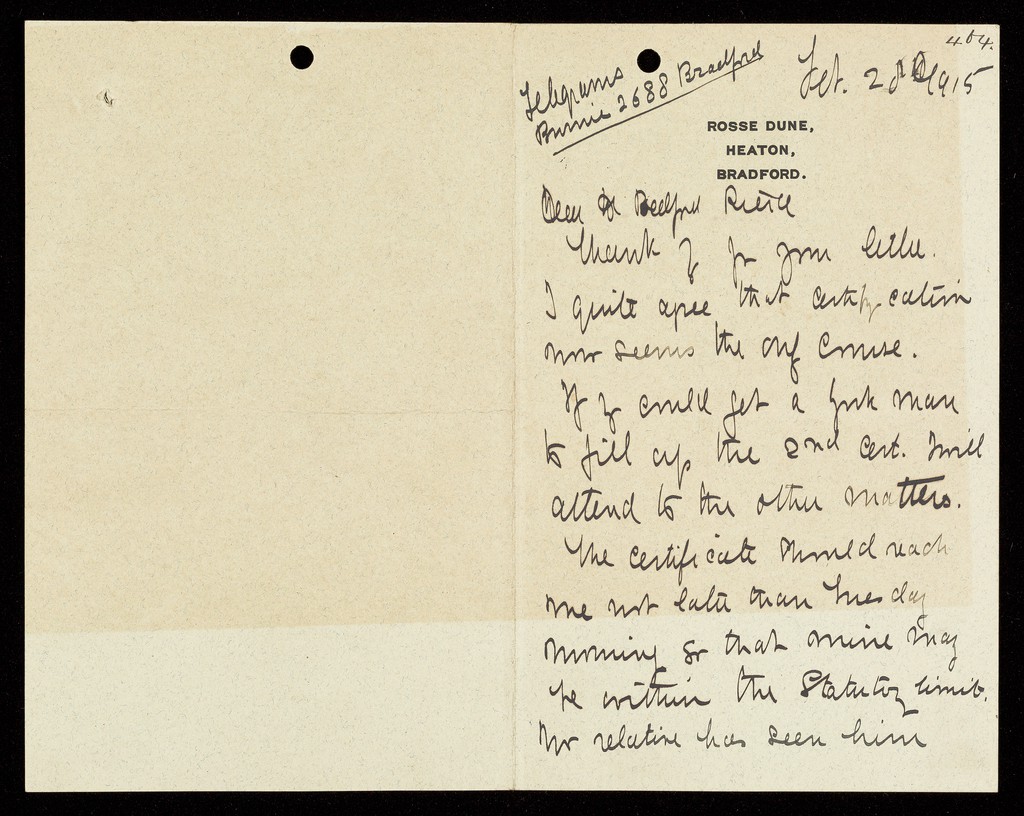 404.
Telegrams
2688 Bradford
Feb. 28th 1915
ROSSE DUNE,
HEATON,
BRADFORD.
Dear Dr Bedford Pierce
Thank y for your letter.
I quite agree that certification
now seems the only course.
If y could get a York man
to fill up the 2nd Cert. I will
attend to the other matters.
The certificate should reach
me not later than Tuesday
morning so that mine may
be within the Statutory limit.
No relative has seen him